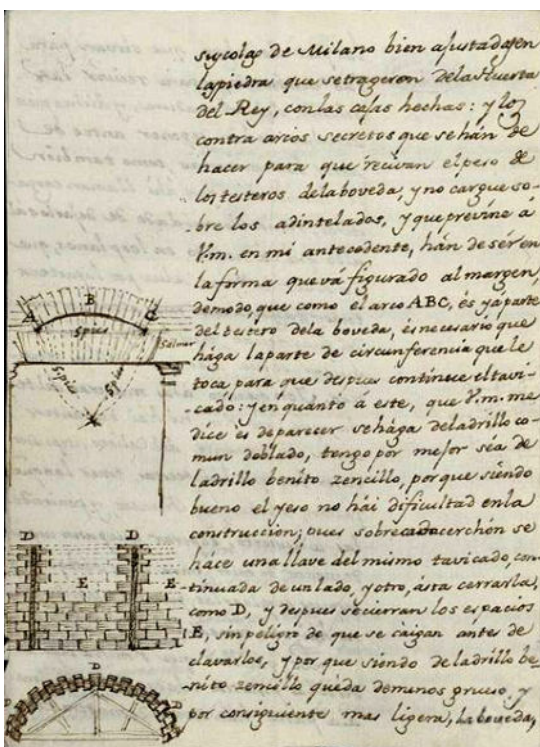 sus colas de Milano bien ajustadas en
la piedra que se trageron de la Huerta
del Rey, con las cajas hechas: y los
contra arcos secretos que se hán de
hacer para que recivan el peso de
los testeros de la boveda, y no cargue so-
bre los adintelados, y que previne á
V.m. en mi antecedente, hán de sér en
la forma que vá figurado al margen,
de modo, que como el arco ABC, és yá parte
del testero de la boveda, és necesario que
hága la parte de circunferencia que le
toca para que despues continue el tavi-
cado: y en quanto á este, que V.m. me
dice és de parecer se hága de ladrillo co-
mun doblado, tengo por mejor séa de
ladrillo benito zencillo, porque siéndo
bueno el yeso no hái dificultad en la
construccion; pues sobre cada cerchón se
háce una llave del mismo tavicado, con-
tinuada de un lado, y otro, ásta cerrarla,
como D, y despues se cierran los espacios
E, sin peligro de que se cáigan antes de
clavarlos, y por que siéndo de ladrillo be-
nito zencillo queda de menos grueso, y
por consiguiente mas ligera, la boveda,
A B C
5 pies
Salmer
5 pies
5 pies
D D
E E
D
D D